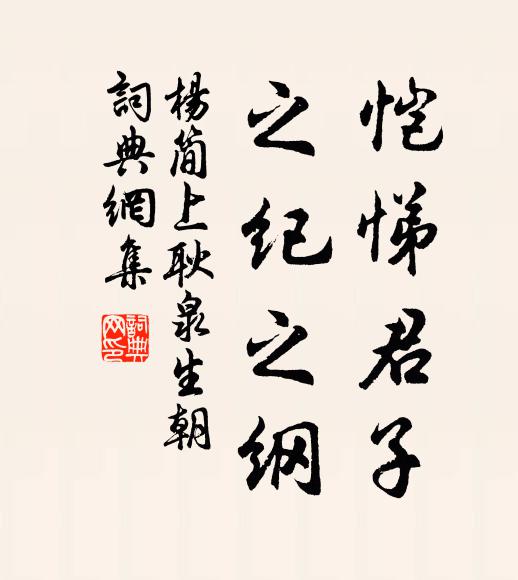 恺悌君子
之纪之纲
杨简上耿泉生朝
詞典網集
詞典网印